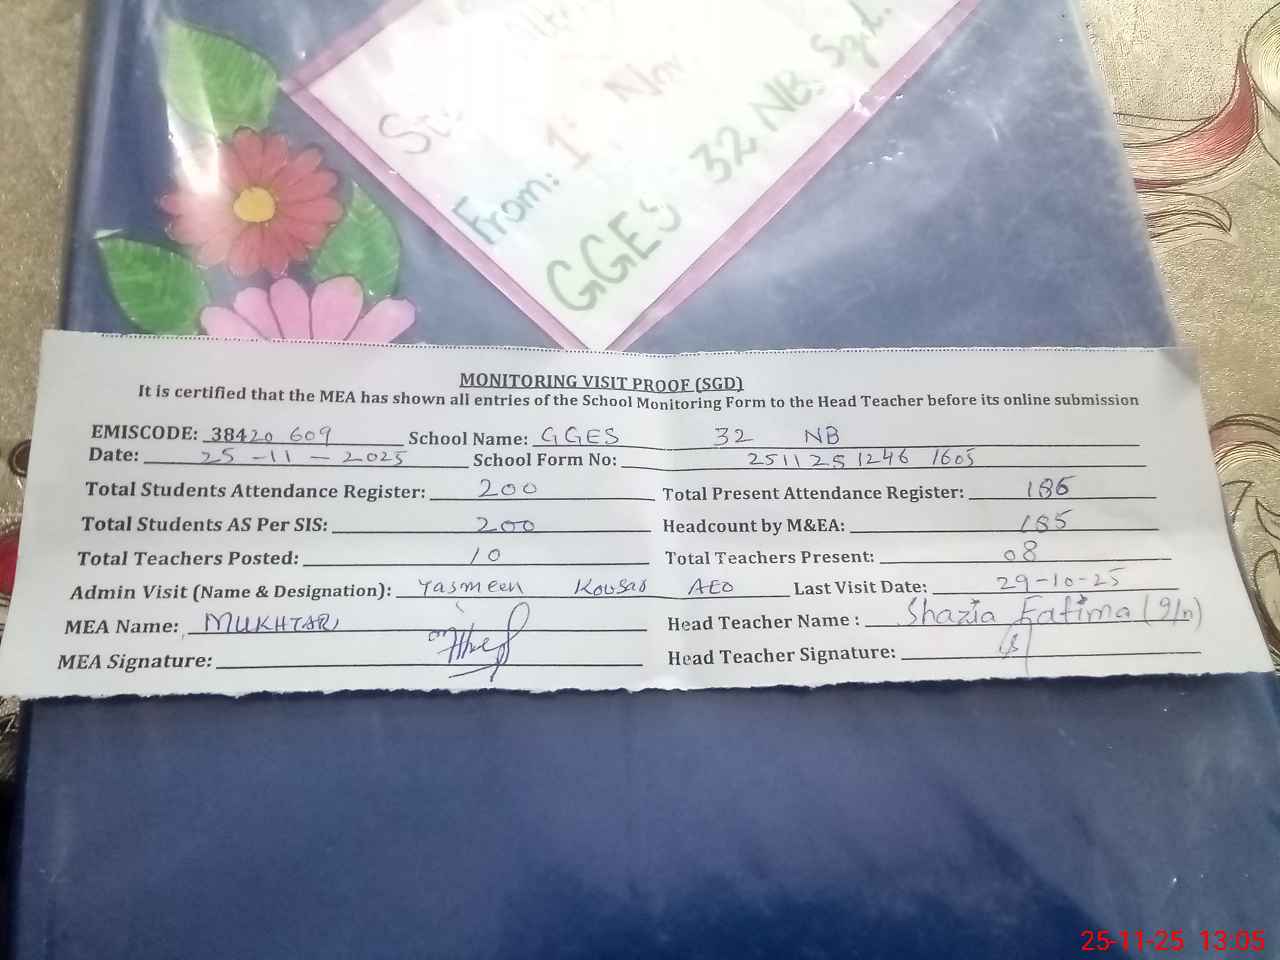 From: 1. Nov
GGES 32 NB. Sgd.
MONITORING VISIT PROOF (SGD)
It is certified that the MEA has shown all entries of the School Monitoring Form to the Head Teacher before its online submission
EMISCODE: 38420 609 School Name: GGES 32 NB
Date: 25-11-2025 School Form No: 251125 1246 1605
Total Students Attendance Register: 200 Total Present Attendance Register: 186
Total Students AS Per SIS: 200 Headcount by M&EA: 185
Total Teachers Posted: 10 Total Teachers Present: 08
Admin Visit (Name & Designation): Yasmeen Kousar AEO Last Visit Date: 29-10-25
MEA Name: MUKHTAR Head Teacher Name : Shazia Fatima (9/n)
MEA Signature: Head Teacher Signature:
25-11-25 13:05